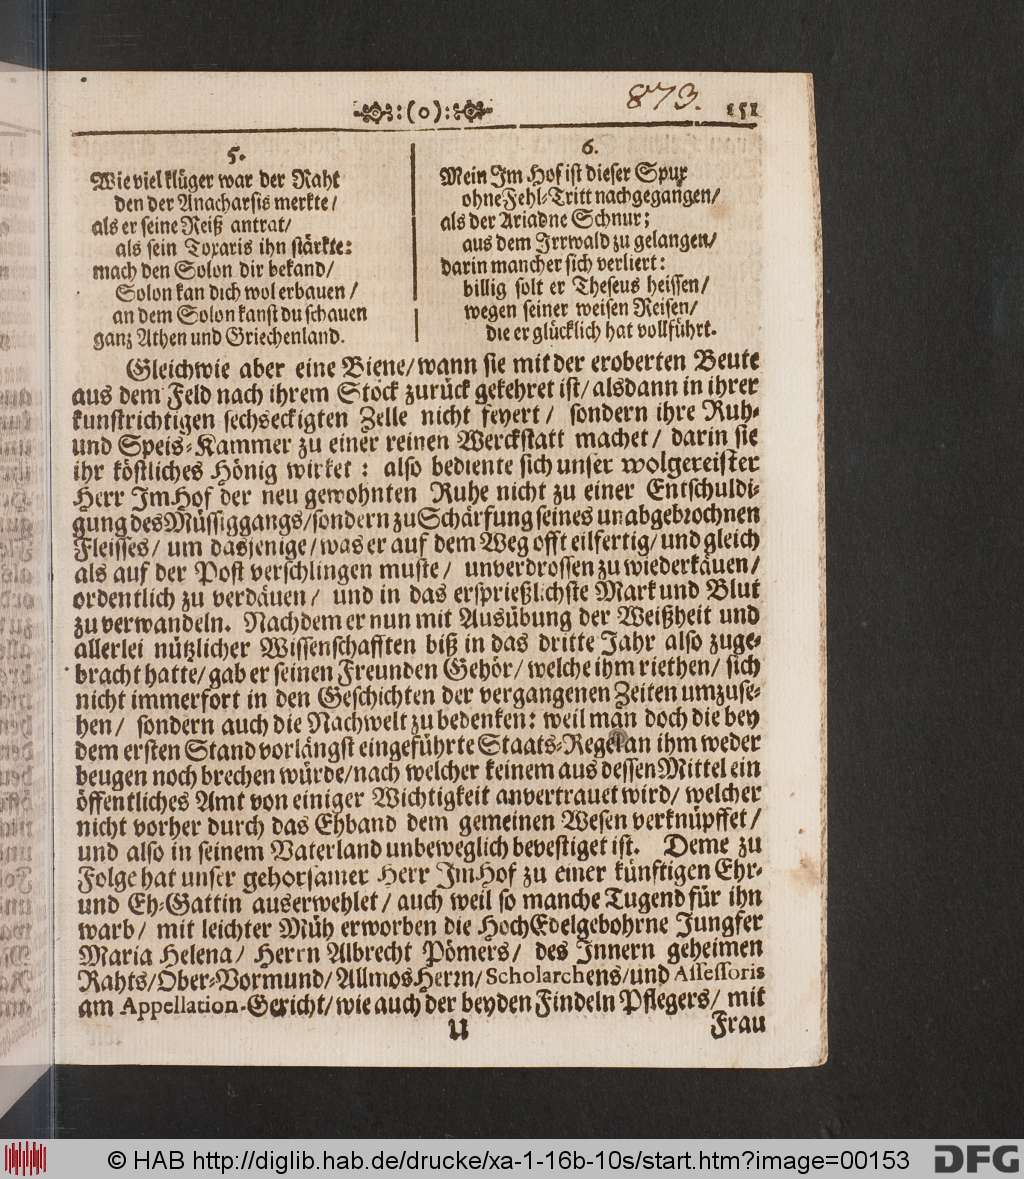 :(o):
873.
151
5.
Wie viel klüger war der Raht
den der Anacharsis merkte/
als er seine Reiß antrat/
als sein Toxaris ihn stärkte:
mach den Solon dir bekand/
Solon kan dich wol erbauen/
an dem Solon kanst du schauen
ganz Athen und Griechenland.
6.
Mein Im Hof ist dieser Spur
ohne Fehl-Tritt nachgegangen/
als der Ariadne Schnur;
aus dem Irrwald zu gelangen/
darin mancher sich verliert:
billig solt er Theseus heissen/
wegen seiner weisen Reisen/
die er glücklich hat vollführt.
Gleichwie aber eine Biene/wann sie mit der eroberten Beute
aus dem Feld nach ihrem Stock zurück gekehret ist/alsdann in ihrer
kunstrichtigen sechseckigten Zelle nicht feyert/ sondern ihre Ruh-
und Speis-Kammer zu einer reinen Werckstatt machet/ darin sie
ihr köstliches Hönig wirket: also bediente sich unser wolgereister
Herr ImHof der neu gewohnten Ruhe nicht zu einer Entschuldi-
gung des Müssiggangs/sondern zu Schärfung seines unabgebrochnen
Fleisses/ um dasjenige/was er auf dem Weg offt eilfertig/und gleich
als auf der Post verschlingen muste/ unverdrossen zu wiederkäuen/
ordentlich zu verdäuen/ und in das ersprießlichste Mark und Blut
zu verwandeln. Nachdem er nun mit Ausübung der Weißheit und
allerlei nützlicher Wissenschafften biß in das dritte Jahr also zuge-
bracht hatte/gab er seinen Freunden Gehör/welche ihm riethen/ sich
nicht immerfort in den Geschichten der vergangenen Zeiten umzuse-
hen/ sondern auch die Nachwelt zu bedenken: weil man doch die bey
dem ersten Stand vorlängst eingeführte Staats-Regel an ihm weder
beugen noch brechen würde/nach welcher keinem aus dessen Mittel ein
öffentliches Amt von einiger Wichtigkeit anvertrauet wird/ welcher
nicht vorher durch das Ehband dem gemeinen Wesen verknüpffet/
und also in seinem Vaterland unbeweglich bevestiget ist. Deme zu
Folge hat unser gehorsamer Herr ImHof zu einer künftigen Ehr-
und Eh-Gattin auserwehlet/ auch weil so manche Tugend für ihn
warb/ mit leichter Müh erworben die HochEdelgebohrne Jungfer
Maria Helena/ Herrn Albrecht Pömers/ des Innern geheimen
Rahts/Ober-Vormund/AllmosHerrn/Scholarchens/und Assessoris
am Appellation-Gericht/wie auch der beyden Findeln Pflegers/ mit
U
Frau
© HAB http://diglib.hab.de/drucke/xa-1-16b-10s/start.htm?image=00153
DFG